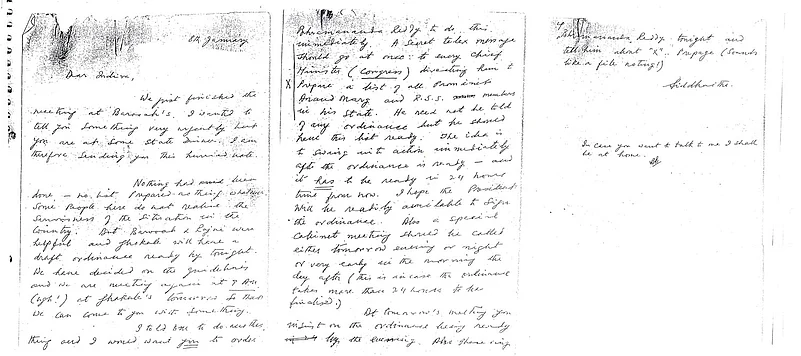 8th January
Dear Indira,
We just finished the
meeting at Barooah's. I wanted to
tell you something very urgently but
you are at some State dinner. I am
therefore sending you this hurried note.
Nothing had been
done - no list prepared - nothing
Some people here do not realise the
seriousness of the situation in the
country. But Barooah & Rajni were
helpful and Gokhale will have a
draft ordinance ready by tonight.
We have decided on the guidelines
and we are meeting again at 9 AM
(ugh!) at Gokhale's tomorrow so that
we can come to you with something.
I told to do another
thing and I would want you to order
Brahmananda Reddy to do this
immediately. A Secret telex message
should go at once to every Chief
Minister (Congress) directing him to
X prepare a list of all prominent
Anand Marg and R.S.S. members
in his State. He need not be told
of any ordinance but he should
have this list ready. The idea is
to swing into action immediately
after the ordinance is ready - and
it has to be ready in 24 hours
time from now. I hope the President
will be readily available to sign
the ordinance. Also a special
cabinet meeting should be called
either tomorrow evening or night
or very early in the morning the
day after (this is in case the ordinance
takes more than 24 hours to be
finalised.)
At tomorrow's meeting you
insist on the ordinance being ready
by the evening. Also please ring
4
Brahmananda Reddy tonight and
tell him about "X" Prepage (Sounds
like a file noting!)
Siddhartha.
In case you want to talk to me I shall
be at home.